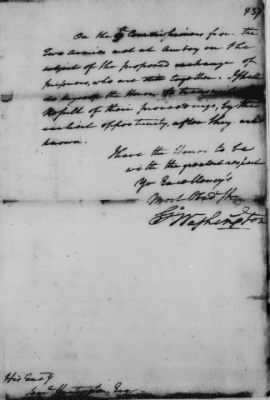 437
On the Commissioners from the
two armies met at Amboy on the
subject of the proposed exchange of
prisoners, who are still together. I shall
do myself the Honor to transmit
Result of their proceedings, by the
earliest opportunity, after they are
known.
I have the Honor to be
with the greatest respect
Yr Excellency's
Most Obed St
Go Washington
His Excy
Saml Huntington, Esq